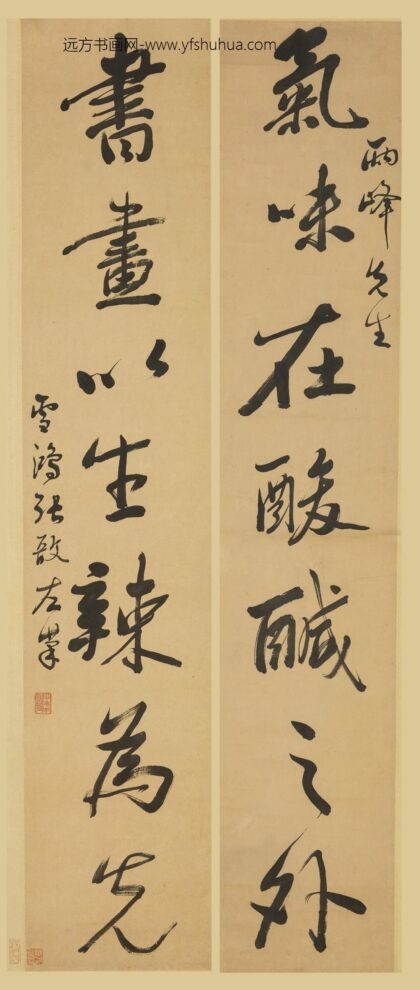 远方书画网-www.yfshuhua.com
兩峰先生
氣味在酸醎之外
書畫以生辣為先
雪鴻張敔左筆